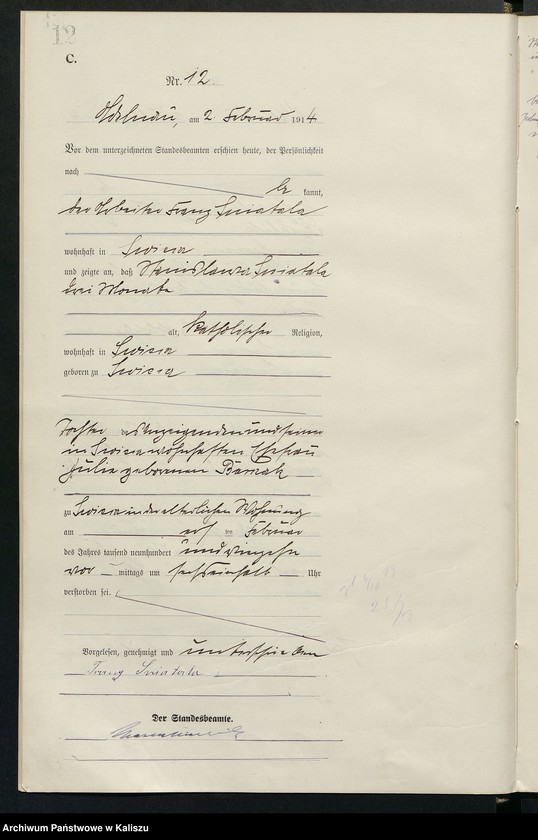 12
C.
Nr. 12
Adelnau, am 2 Februar 1914
Vor dem unterzeichneten Standesbeamten erschien heute, der Persönlichkeit
nach be kannt,
der Arbeiter Franz Swiatala
wohnhaft in Swieca
und zeigte an, daß Stanislawa Swiatala
drei Monate
alt, katholischer Religion,
wohnhaft in Swieca
geboren zu Swieca
Tochter des Anzeigenden und seiner
in Swieca wohnhaften Ehefrau
Julia geborenen
zu Swieca in der elterlichen Wohnung
am ersten Februar
des Jahres tausend neunhundert und vierzehn
vor mittags um sechseinhalb Uhr
verstorben sei.
Vorgelesen, genehmigt und unterschrieben
Franz Swiatala
Der Standesbeamte.
Archiwum Państwowe w Kaliszu